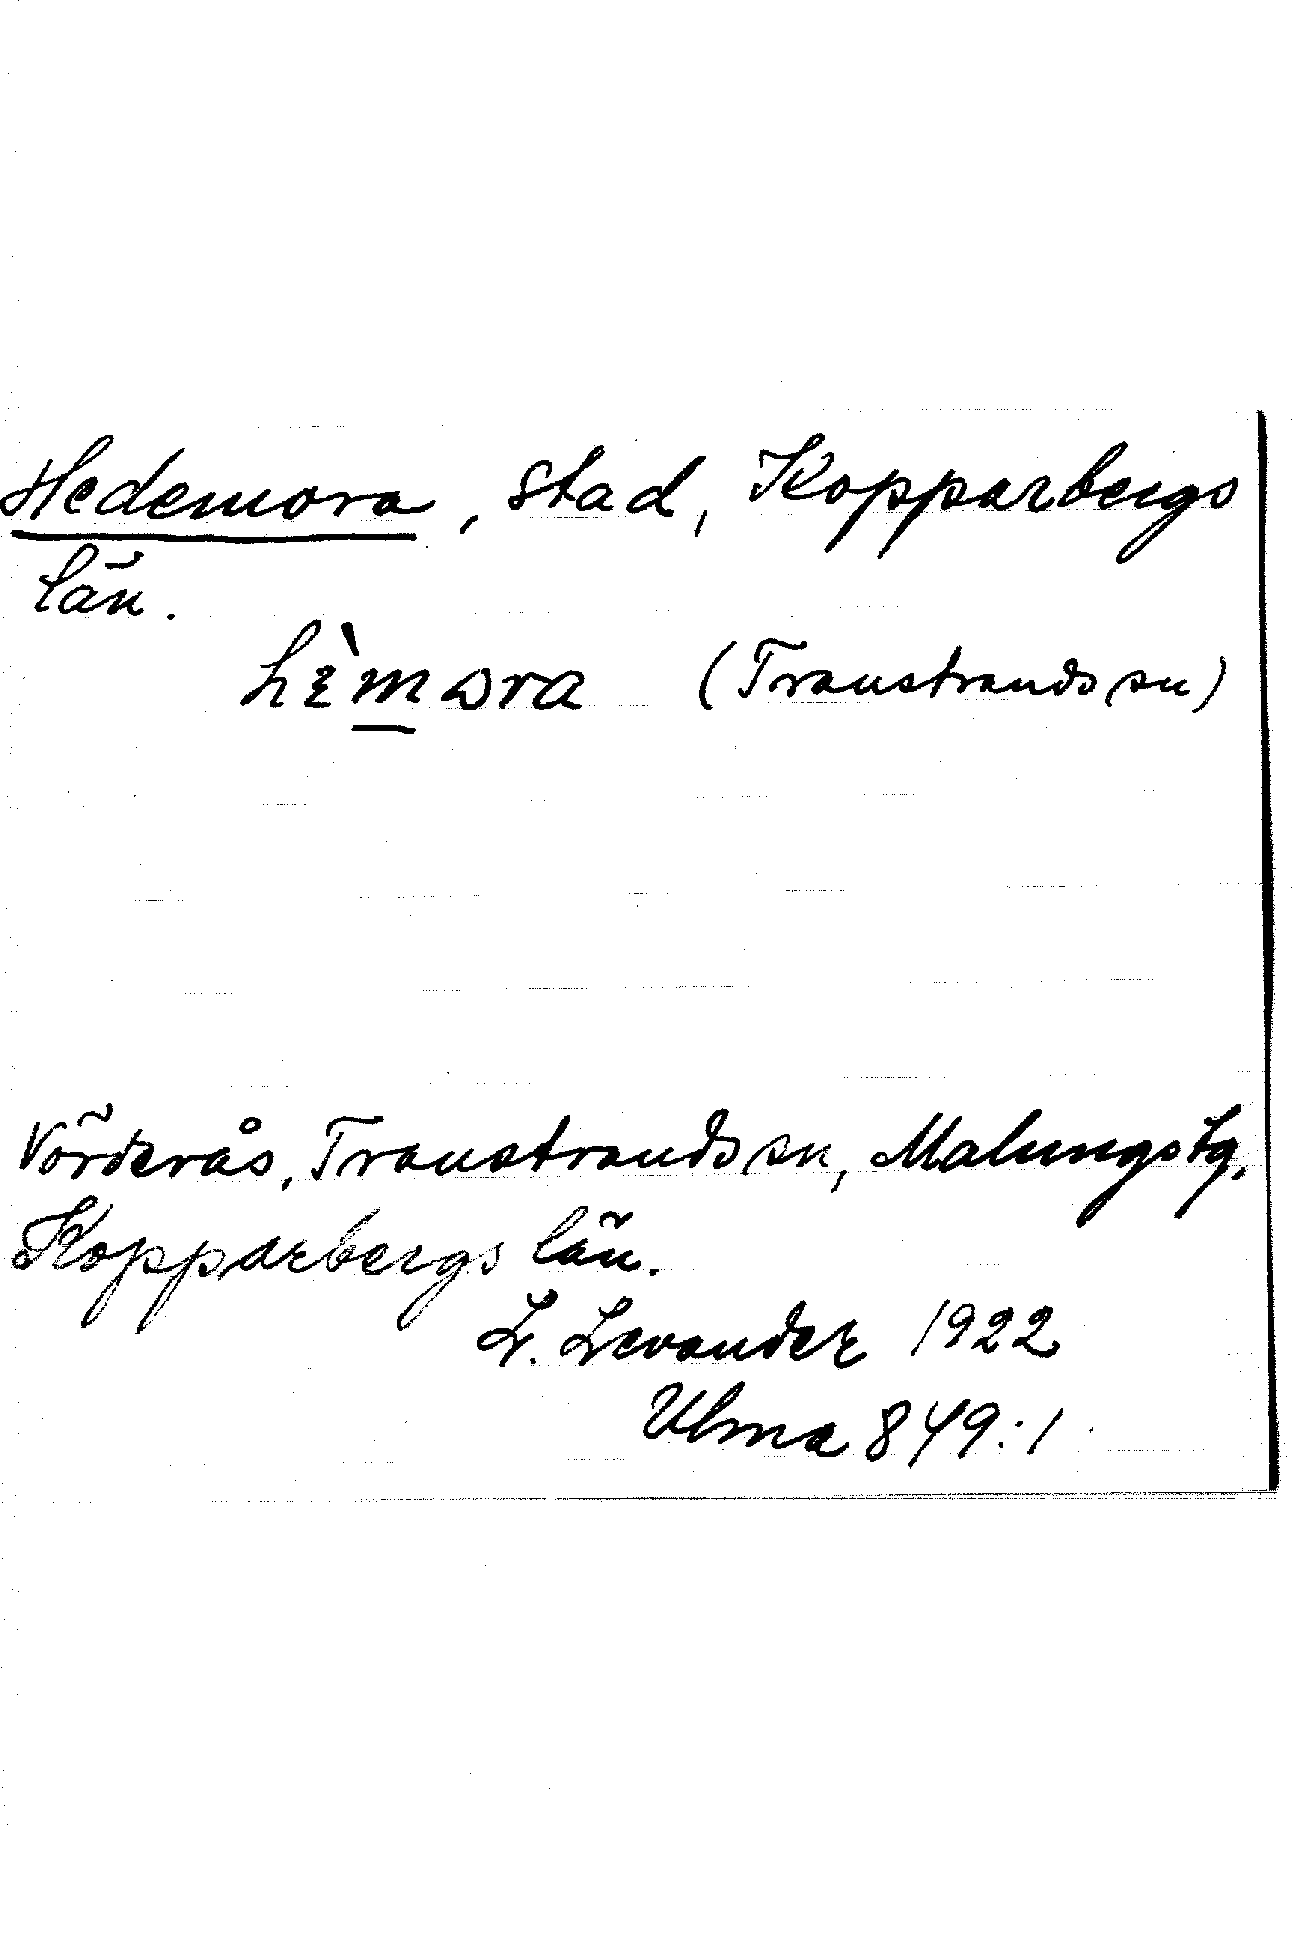 Hedemora, stad, Kopparbergs
län.
hèmɷra (Transtrands sn)
Vörderås, Transtrands sn, Malungs tg,
Kopparbergs län.
L. Levander 1922
Ulma 849:1